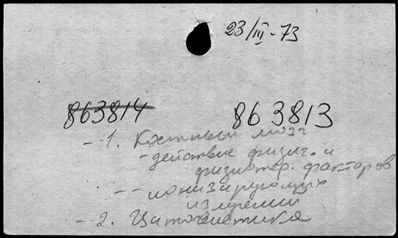 23/III-73
863814 863813
-- 1. Костный мозг
- действие физич. и
физиотер. факторов
-- ионизирующих
излучений
-- 2. Цитогенетика